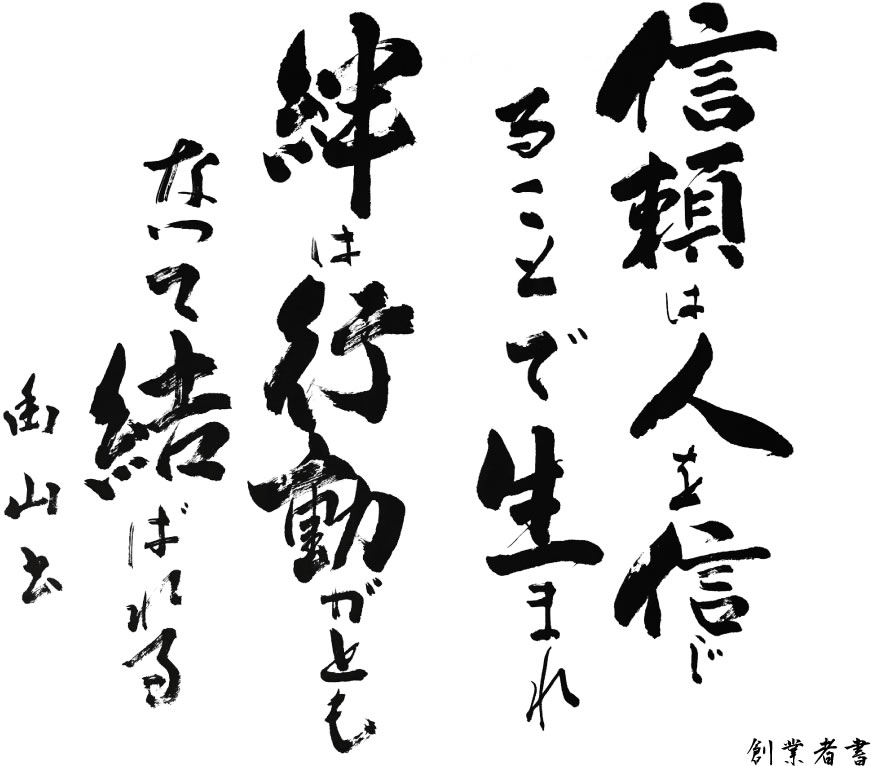 信頼は人を信じ
ることで生まれ
絆は行動がとも
なって結ばれる
山書
創業者書